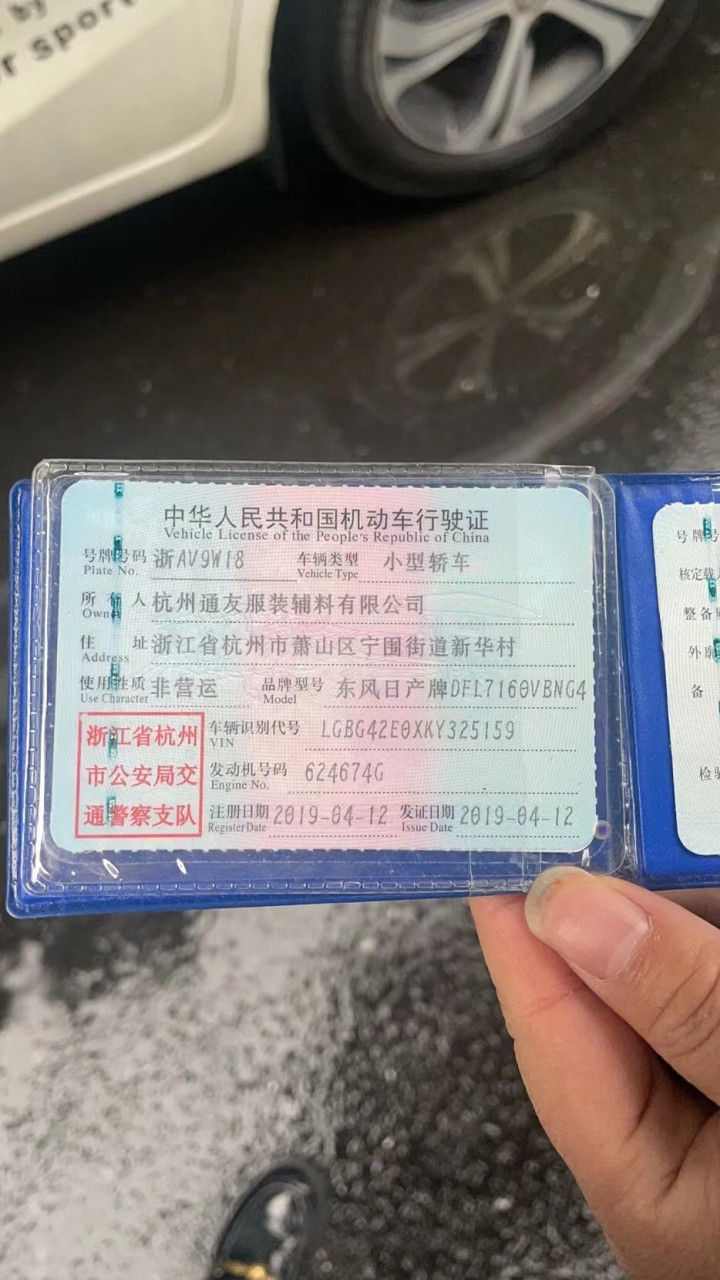 by
r sport
中华人民共和国机动车行驶证
Vehicle License of the People's Republic of China
号牌号码 浙AV9W18 车辆类型 小型轿车
Plate No. Vehicle Type
所有人 杭州通友服装辅料有限公司
Owner
住址 浙江省杭州市萧山区宁围街道新华村
Address
使用性质 非营运 品牌型号 东风日产牌DFL7160VBNG4
Use Character Model
浙江省杭州
市公安局交
通警察支队
车辆识别代号 LGBG42E0XKY325159
VIN
发动机号码 624674G
Engine No.
注册日期 2019-04-12 发证日期 2019-04-12
Register Date Issue Date
号牌号
核定载
整备质
外廓
备
检验